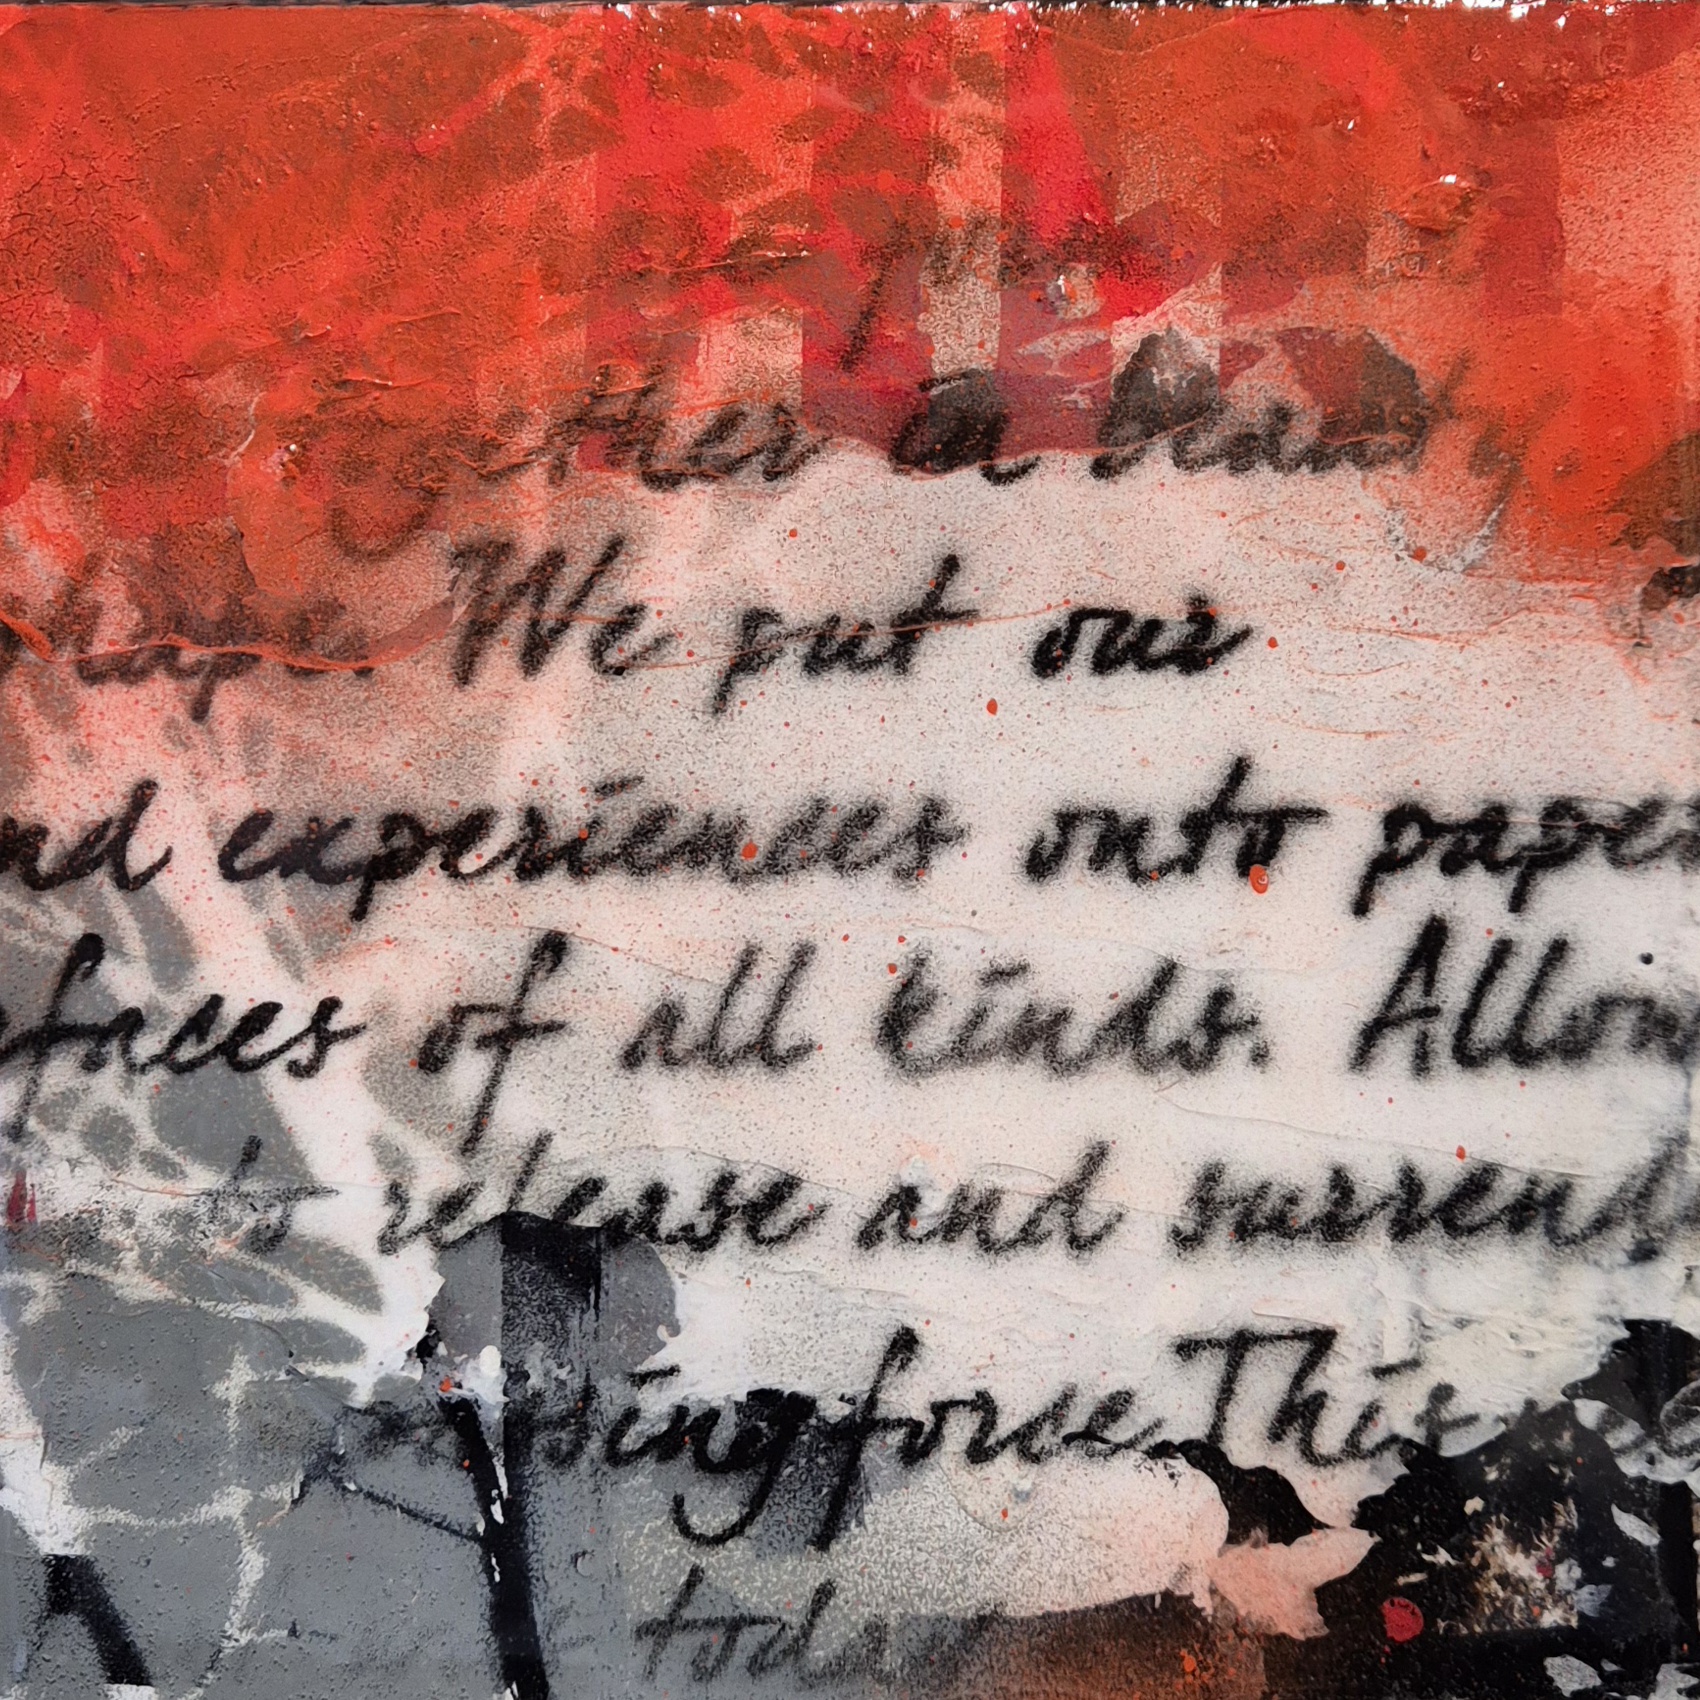 a
We put our
nd experiences onto paper
faces of all kinds. Allow
to release and surrend
ing force. This
today